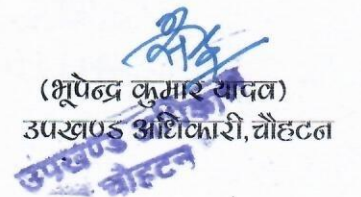 (भूपेन्द्र कुमार यादव)
उपखण्ड अधिकारी, चौहटन
उपखण्ड अधिकारी
चोहटन